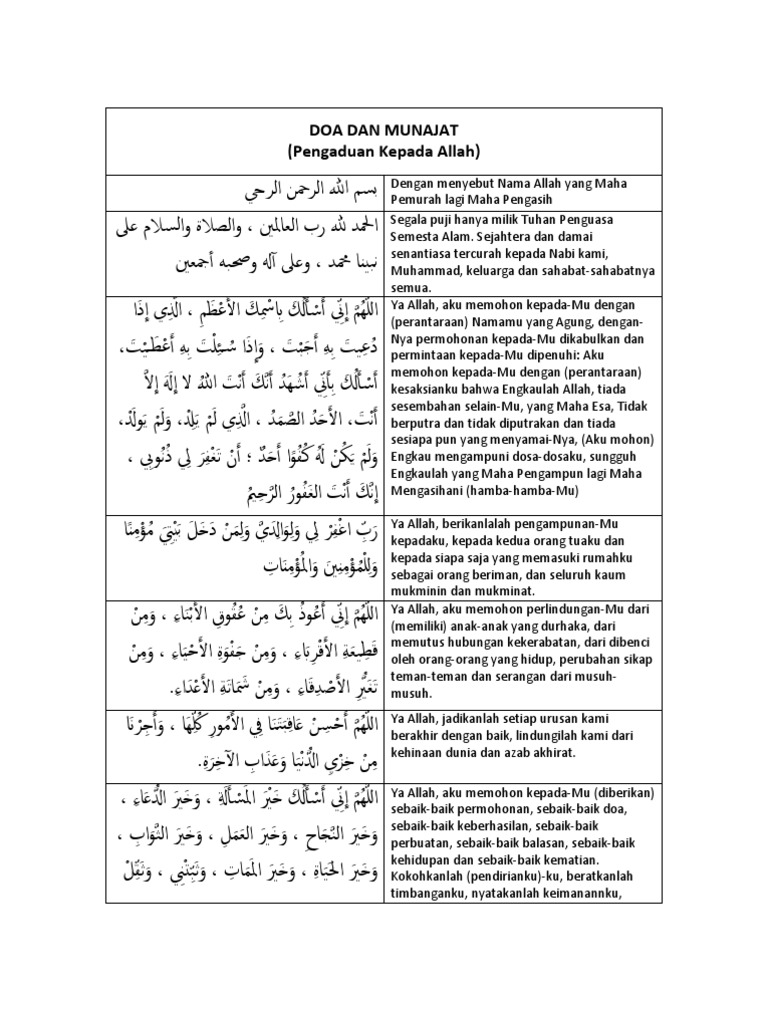 DOA DAN MUNAJAT
(Pengaduan Kepada Allah)
بسم الله الرحمن الرحي
Dengan menyebut Nama Allah yang Maha
Pemurah lagi Maha Pengasih
الحمد لله رب العالمين ، والصلاة والسلام على
نبينا محمد ، وعلى آله وصحبه أجمعين
Segala puji hanya milik Tuhan Penguasa
Semesta Alam. Sejahtera dan damai
senantiasa tercurah kepada Nabi kami,
Muhammad, keluarga dan sahabat-sahabatnya
semua.
اللَّهُمَّ إِنِّي أَسْأَلُكَ بِاسْمِكَ الأَعْظَمِ ، الَّذِي إِذَا
دُعِيتَ بِهِ أَجَبْتَ ، وَإِذَا سُئِلْتَ بِهِ أَعْطَيْتَ،
أَسْأَلُكَ بِأَنِّي أَشْهَدُ أَنَّكَ أَنْتَ اللهُ لا إِلَهَ إِلاَّ
أَنْتَ، الأَحَدُ الصَّمَدُ ، الَّذِي لَمْ يَلِدْ، وَلَمْ يَولَدْ،
وَلَمْ يَكُنْ لَهُ كُفُوًا أَحَدٌ ؛ أَنْ تَغْفِرَ لِي ذُنُوبِي ،
إِنَّكَ أَنْتَ الغَفُورُ الرَّحِيمُ
Ya Allah, aku memohon kepada-Mu dengan
(perantaraan) Namamu yang Agung, dengan-
Nya permohonan kepada-Mu dikabulkan dan
permintaan kepada-Mu dipenuhi: Aku
memohon kepada-Mu dengan (perantaraan)
kesaksianku bahwa Engkaulah Allah, tiada
sesembahan selain-Mu, yang Maha Esa, Tidak
berputra dan tidak diputrakan dan tiada
sesiapa pun yang menyamai-Nya, (Aku mohon)
Engkau mengampuni dosa-dosaku, sungguh
Engkaulah yang Maha Pengampun lagi Maha
Mengasihani (hamba-hamba-Mu)
رَبِّ اغْفِرْ لِي وَلِوَالِدَيَّ وَلِمَنْ دَخَلَ بَيْتِيَ مُؤْمِنًا
وَلِلْمُؤْمِنِينَ وَالْمُؤْمِنَاتِ
Ya Allah, berikanlalah pengampunan-Mu
kepadaku, kepada kedua orang tuaku dan
kepada siapa saja yang memasuki rumahku
sebagai orang beriman, dan seluruh kaum
mukminin dan mukminat.
اللَّهُمَّ إِنِّي أَعُوذُ بِكَ مِنْ عُقُوقِ الأَبْنَاءِ ، وَمِنْ
قَطِيعَةِ الأَقْرِبَاءِ ، وَمِنْ جَفْوَةِ الأَحْيَاءِ ، وَمِنْ
تَغَيُّرِ الأَصْدِقَاءِ ، وَمِنْ شَمَاتَةِ الأَعْدَاءِ.
Ya Allah, aku memohon perlindungan-Mu dari
(memiliki) anak-anak yang durhaka, dari
memutus hubungan kekerabatan, dari dibenci
oleh orang-orang yang hidup, perubahan sikap
teman-teman dan serangan dari musuh-
musuh.
اللَّهُمَّ أَحْسِنْ عَاقِبَتَنَا فِي الأُمُورِ كُلِّهَا ، وَأَجِرْنَا
مِنْ خِزْيِ الدُّنْيَا وَعَذَابِ الآخِرَةِ.
Ya Allah, jadikanlah setiap urusan kami
berakhir dengan baik, lindungilah kami dari
kehinaan dunia dan azab akhirat.
اللَّهُمَّ إِنِّي أَسْأَلُكَ خَيْرَ المَسْأَلَةِ ، وَخَيرَ الدُّعَاءِ ،
وَخَيرَ النَّجَاحِ ، وَخَيرَ العَمَلِ ، وَخَيرَ الثَّوَابِ ،
وَخَيرَ الحَيَاةِ ، وَخَيرَ المَمَاتِ ، وَثَبِّتْنِي ، وَثَقِّلْ
Ya Allah, aku memohon kepada-Mu (diberikan)
sebaik-baik permohonan, sebaik-baik doa,
sebaik-baik keberhasilan, sebaik-baik
perbuatan, sebaik-baik balasan, sebaik-baik
kehidupan dan sebaik-baik kematian.
Kokohkanlah (pendirianku)-ku, beratkanlah
timbanganku, nyatakanlah keimanannku,